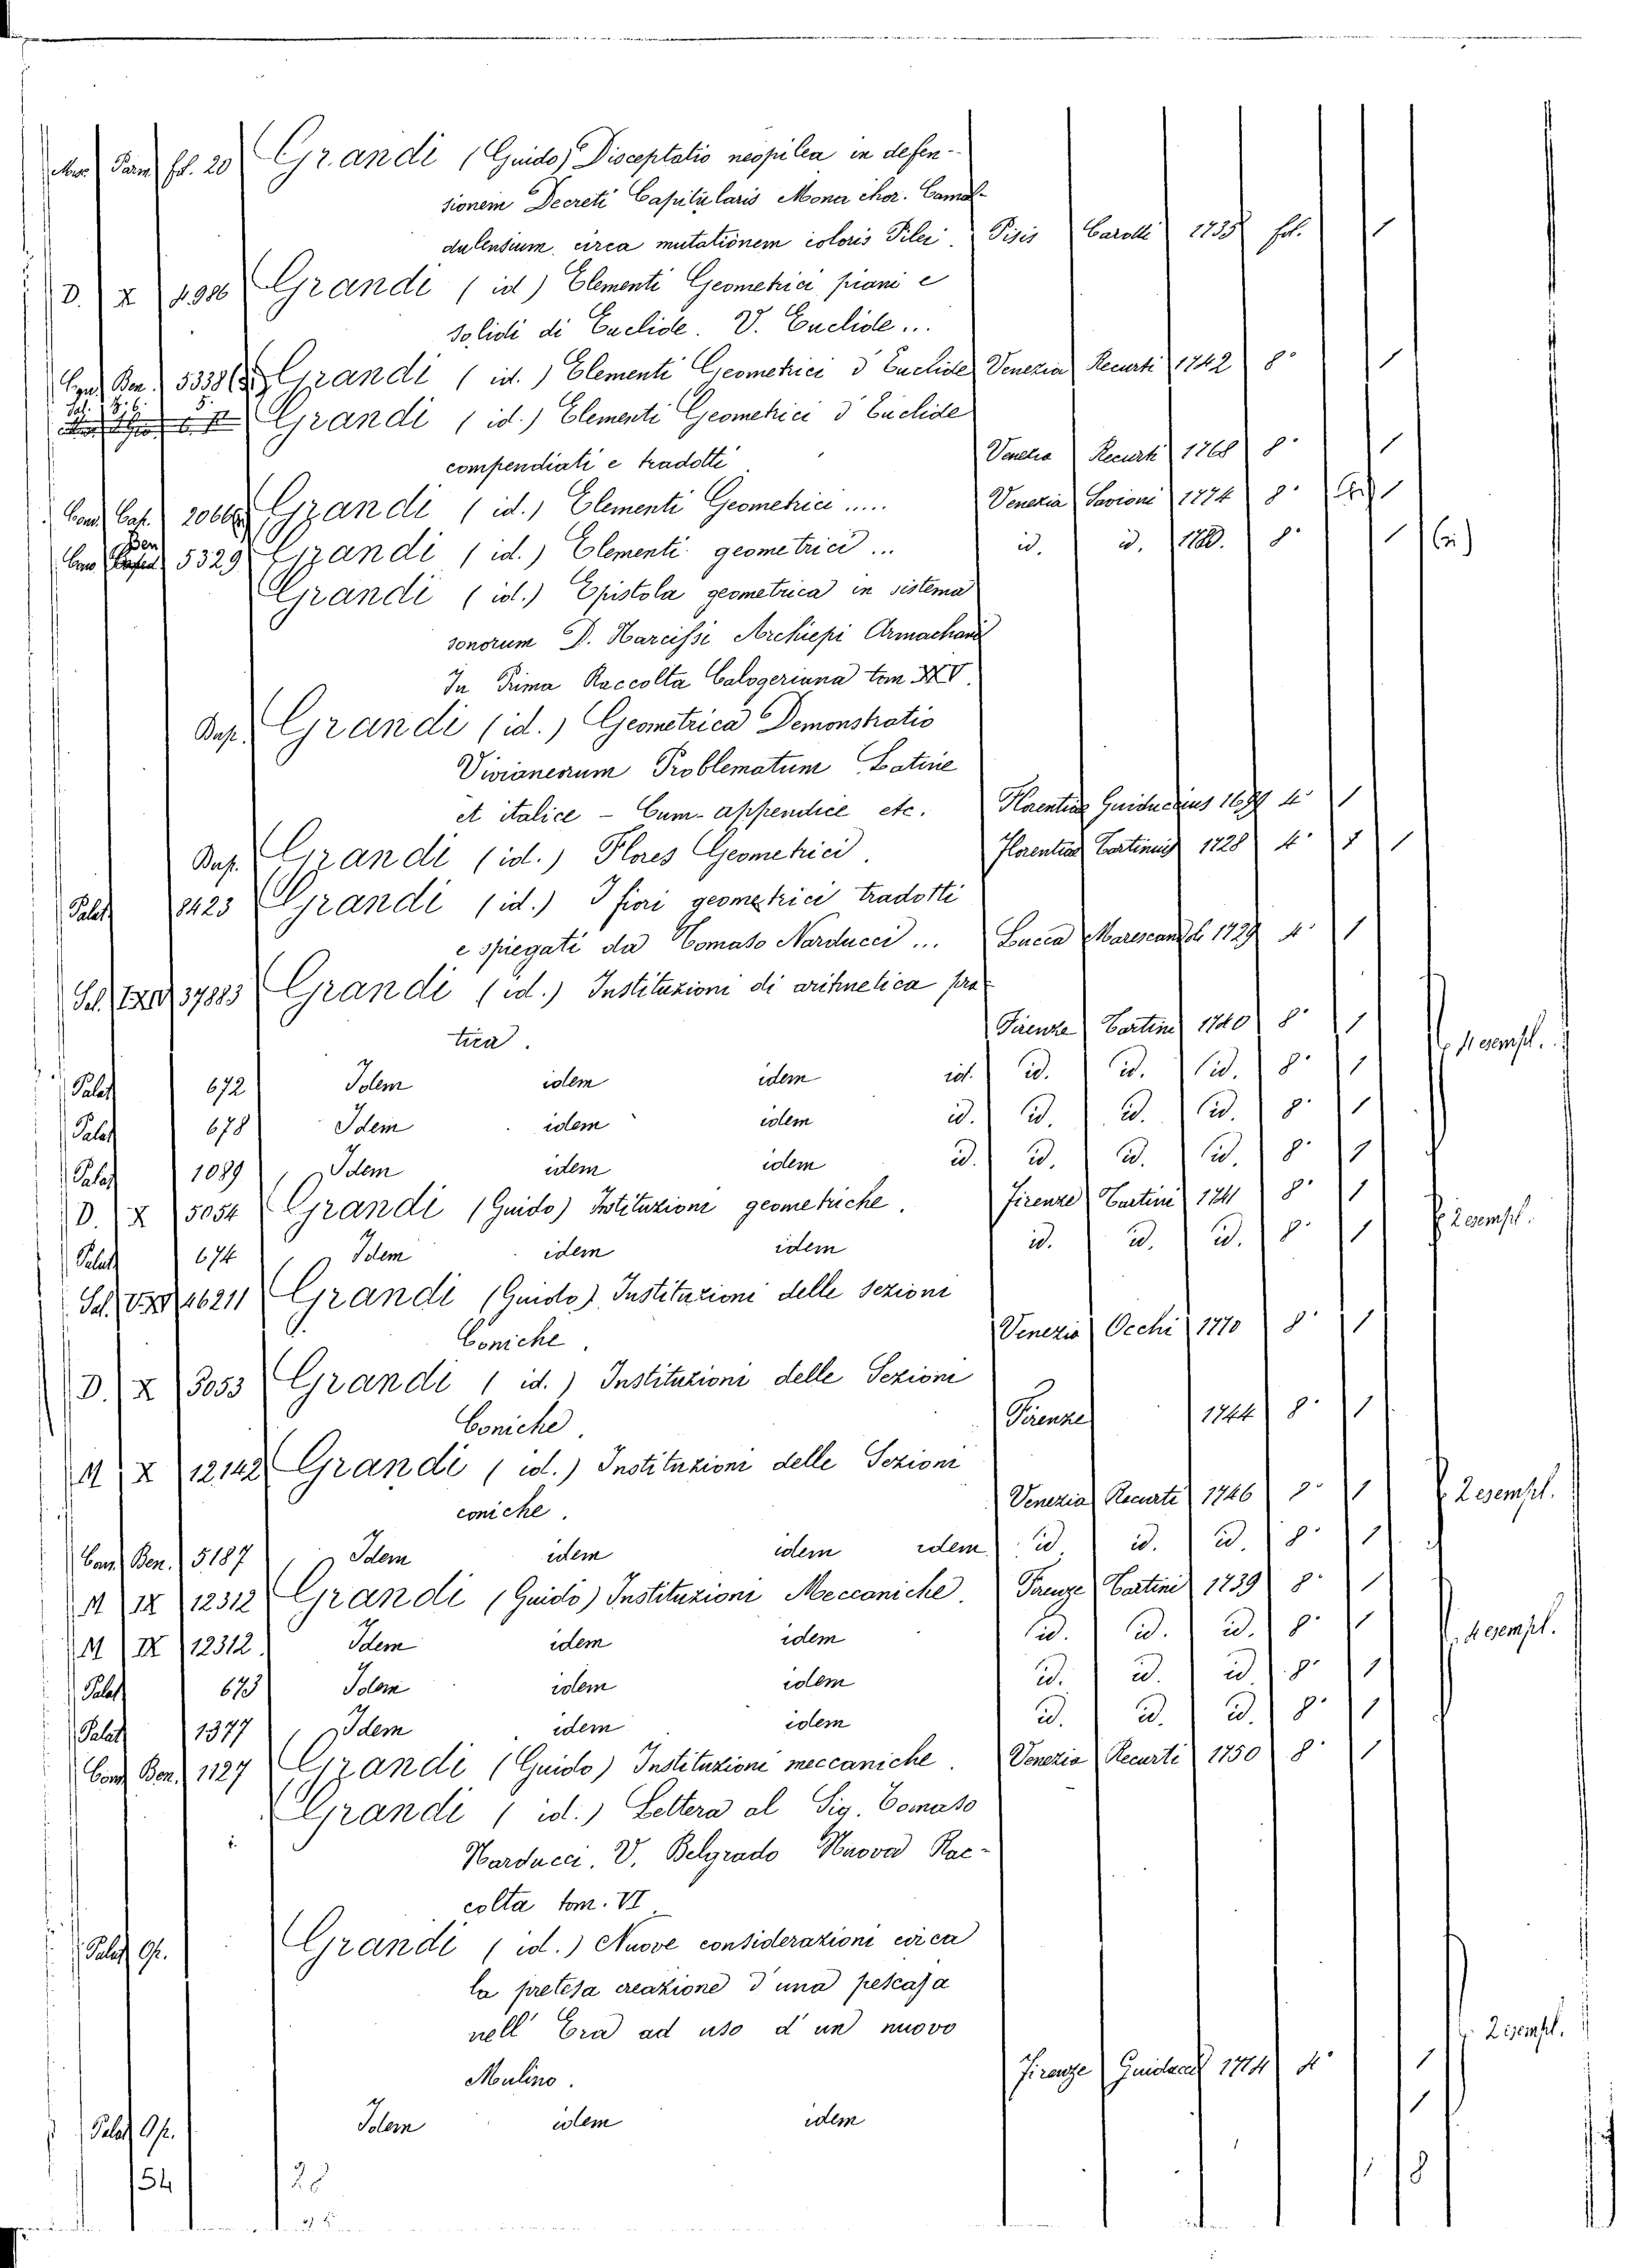 fol. 20 Grandi (Guido) Disceptatio neopilea in defen-
sionem Decreti Capitularis Monachor. Camal-
dulensium circa mutationem coloris Pilei. Pisis Carotti 1735 fol. 1
D. X 4986 Grandi (id) Elementi Geometrici piani e
solidi di Euclide. V. Euclide...
Ben. 5338 Grandi (id.) Elementi Geometrici d'Euclide Venezia Recurti 1742 8° 1
Grandi (id.) Elementi Geometrici d'Euclide
compendiati e tradotti Venetia Recurti 1768 8° 1
Cons. Cap. Grandi (id.) Elementi Geometrici ..... Venezia Savioni 1774 8° 1
Ben 5329 Grandi (id.) Elementi geometrici ... id. id. 1780. 8° 1
Grandi (id.) Epistola geometrica in sistema
sonorum D. Narcissi Archiepi Armachani
In Prima Raccolta Calogeriana tom XXV.
Bap. Grandi (id.) Geometrica Demonstratio
Vivianeorum Problematum Latine
et italice - Cum appendice etc. Florentiae Guiduccius 1699 4° 1
Bap. Grandi (id.) Flores Geometrici. Florentiae Tartinius 1728 4° 1 1
Palat 8423 Grandi (id.) I fiori geometrici tradotti
e spiegati da Tomaso Narducci ... Lucca Marescandoli 1729 4° 1
37883 Grandi (id.) Instituzioni di aritmetica pra-
tica. Firenze Tartini 1740 8° 1 4 esempl.
Palat 672 Idem idem idem id. id. id. id. 8° 1
Palat 678 Idem idem idem id. id. id. id. 8° 1
Palat 1089 Idem idem idem id. id. id. id. 8° 1
D. X 5054 Grandi (Guido) Istituzioni geometriche. Firenze Tartini 1741 8° 1 2 esempl.
Palat 674 Idem idem idem id. id. id. 8° 1
46211 Grandi (Guido) Instituzioni delle sezioni
Coniche. Venezia Occhi 1770 8° 1
D. X 5053 Grandi (id.) Instituzioni delle Sezioni
Coniche Firenze 1744 8° 1
M X 12142 Grandi (id.) Instituzioni delle Sezioni
coniche. Venezia Recurti 1746 8° 1 2 esempl.
Cons. Ben. 5187 Idem idem idem idem id. id. id. 8° 1
M IX 12312 Grandi (Guido) Instituzioni Meccaniche. Firenze Tartini 1739 8° 1
M IX 12312. Idem idem idem id. id. id. 8° 1 4 esempl.
Palat 673 Idem idem idem id. id. id. 8° 1
Palat 1377 Idem idem idem id. id. id. 8° 1
Cons. Ben. 1127 Grandi (Guido) Instituzioni meccaniche. Venezia Recurti 1750 8° 1
Grandi (id.) Lettera al Sig. Tomaso
Narducci. V. Belgrado Nuova Rac-
colta tom. VI.
Palat Op. Grandi (id.) Nuove considerazioni circa
la pretesa creazione d'una pescaja
nell' Era ad uso d'un nuovo
Mulino. Firenze Guiducci 1714 4° 1 2 esempl.
Palat Op. Idem idem idem 1
54 28 1 8